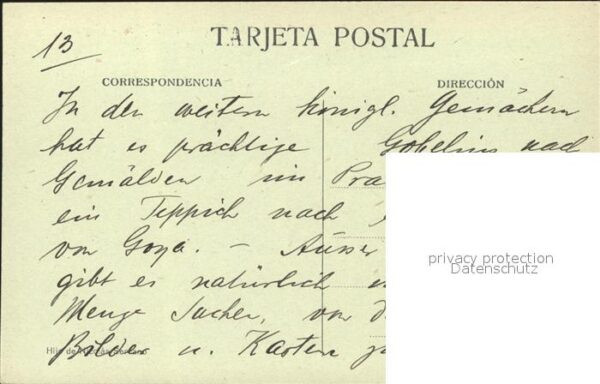 13
TARJETA POSTAL
CORRESPONDENCIA DIRECCIÓN
In den weitern königl. Gemächern
hat es prächtige Gobelins nach
Gemälden im Pra
ein Teppich nach
von Goya. – Ausser
gibt es natürlich
Menge Sachen, von d
Bilder u. Karten
Hijo de
privacy protection
Datenschutz